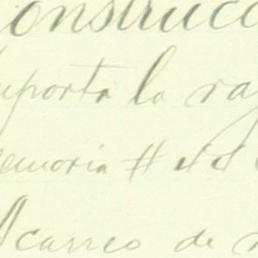 onstrucc
mporta la ra
emoria #
Acarreo de